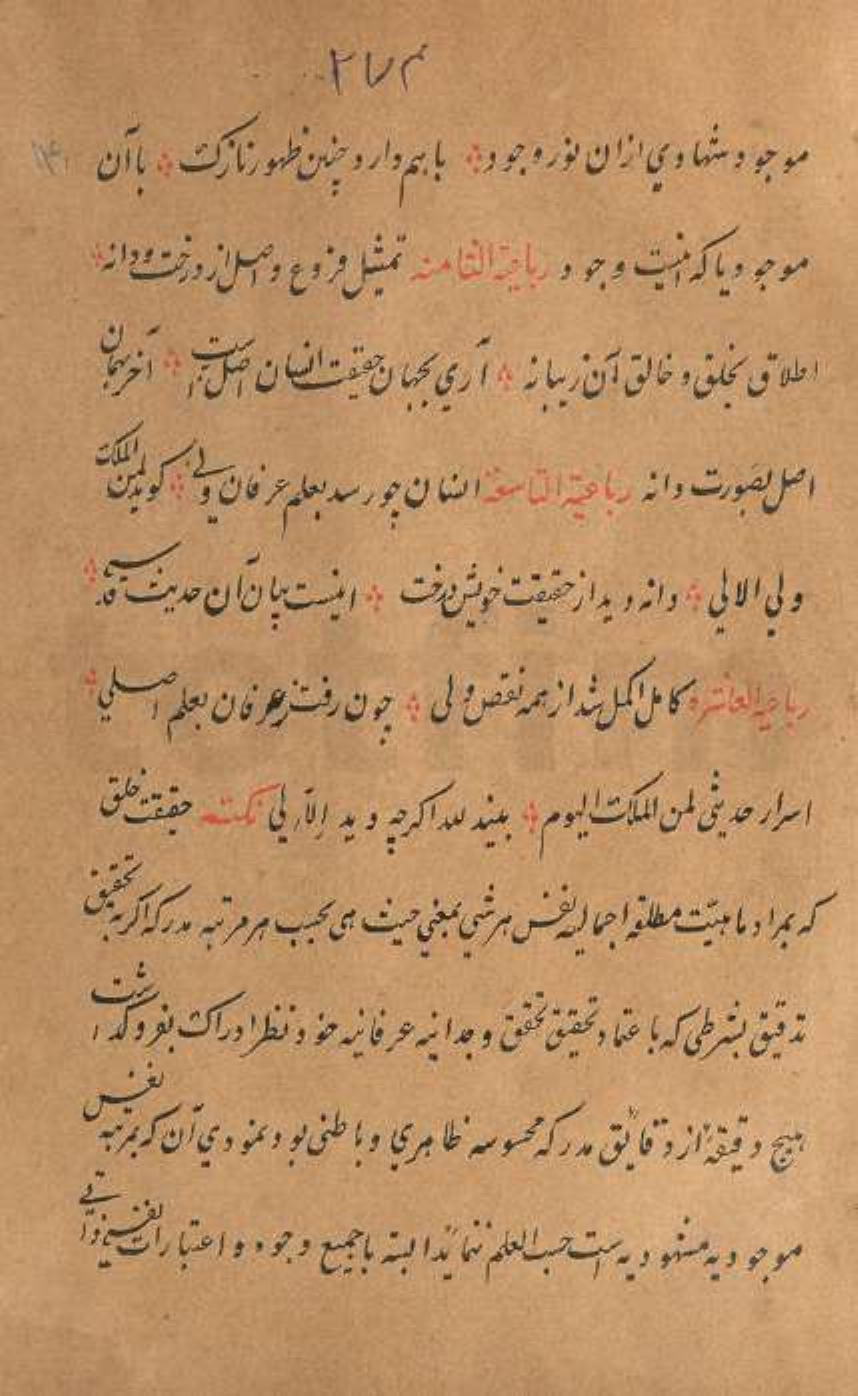 ۲۷۴
موجود شهادي ازان نور وجود ؞ باهم دارد چنين ظهور نازك ؞ با آن
موجود يا كه اينست وجود رباعية الثامنه تمثيل فروع و اصل از درخت ودانه ؞
اطلاق بخلق و خالق آن زيبانه ؞ آري بجهان حقيقت انسان اصل است ؞ آخر بهمان
اصل بصورت دانه رباعية التاسعة انسان چو رسد بعلم عرفان ولي ؞ كويد لمن الملك
ولي الالي ؞ دانه ديد از حقيقت خويش درخت ؞ اينست بيان آن حديث قدسي ؞
رباعية العاشره كامل اكمل شد از همه نقص ولی ؞ چون رفت ز عرفان بعلم اصلي ؞
اسرار حديثی لمن الملك اليوم ؞ بيند لله اكرچه ديد الا لی نكته حقيقت خلق
كه بمراد ماهيّت مطلقه اجماليه نفس هر شي بمعني حيث هی بحسب هر مرتبه مدركه اكر به تحقيق
تدقيق بشرطی كه باعتماد تحقيق تحقق وجدانيه عرفانيه خود نظر ادراك بفرو كذاشت
هيچ دقيقهٔ از دقايق مدركه محسوسه ظاهري و باطنی بود و نمودي آن كه بمرتبه نفس
موجوديه مشهوديه است حسب العلم ننمايد البته با جميع وجوه و اعتبارات نفسي ذاتي